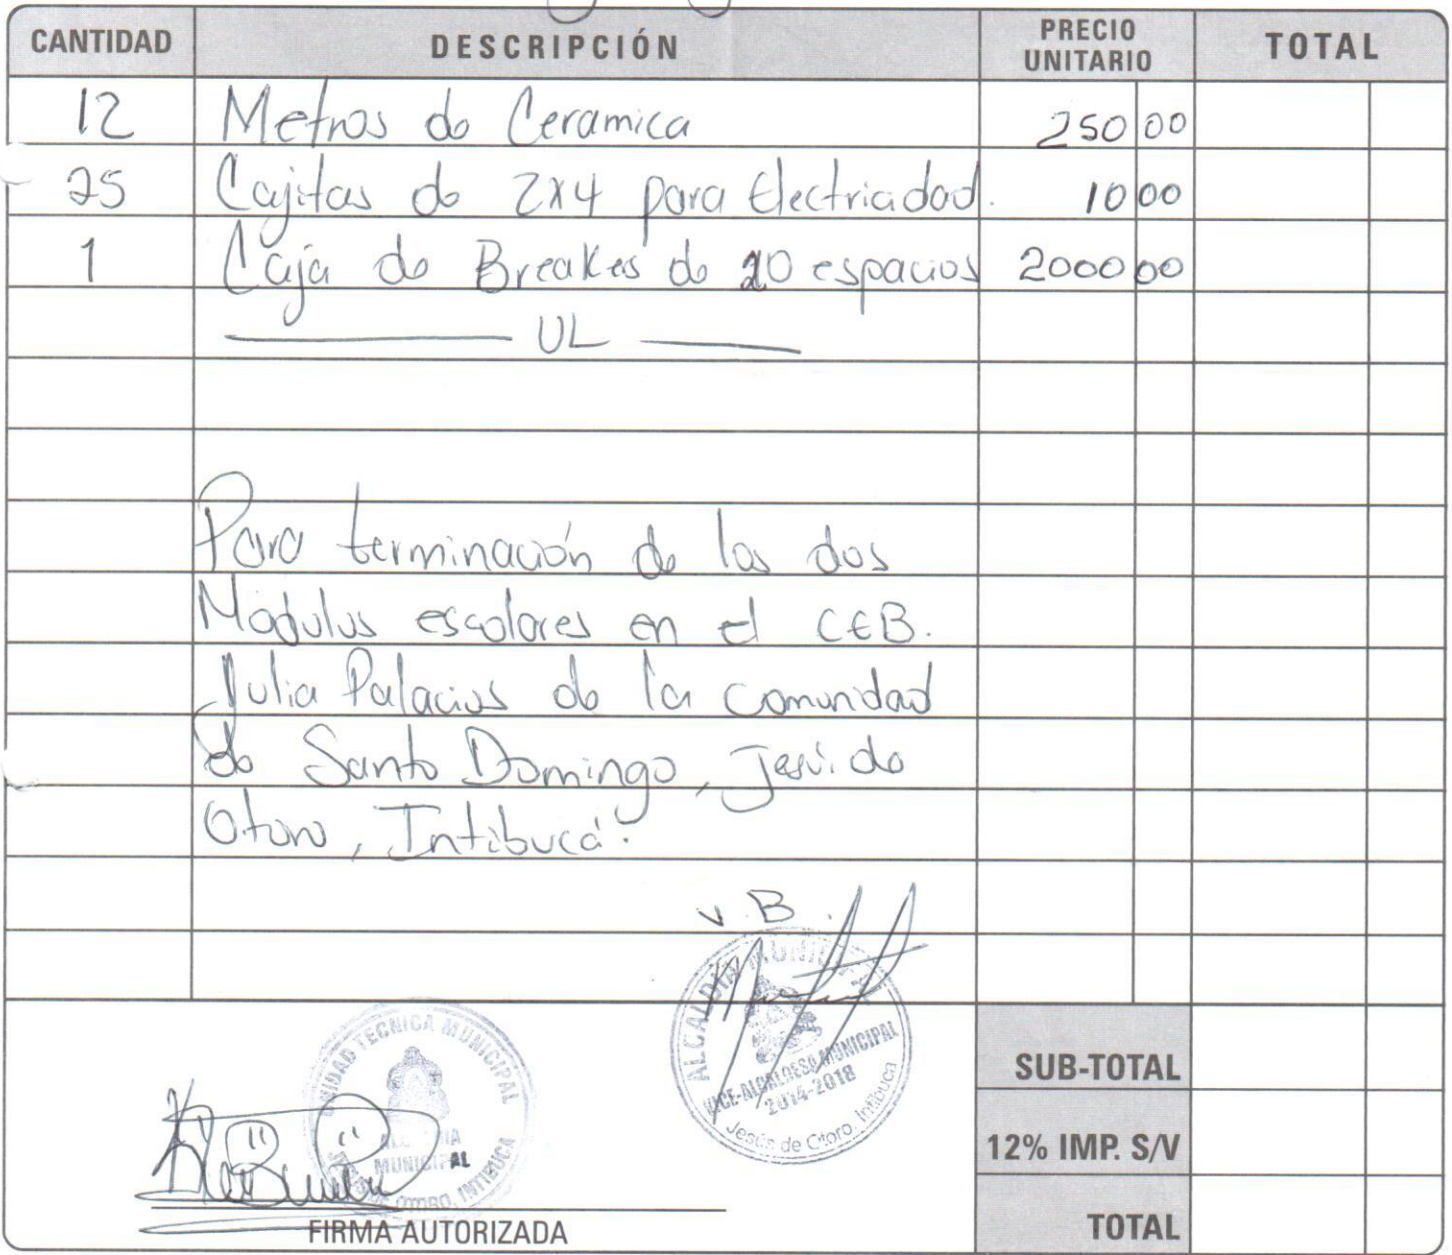 CANTIDAD DESCRIPCIÓN PRECIO UNITARIO TOTAL
12 Metros de Ceramica 250 00
25 Cajitas de 2x4 para Electricidad. 10 00
1 Caja de Breakes de 20 espacios 2000 00
UL
Para terminación de los dos
Modulos escolares en el CEB.
Julia Palacios de la comunidad
de Santo Domingo, Jesús de
Otoro, Intibucá.
V.B.
ALCALDIA MUNICIPAL
VICE-ALCALDESA MUNICIPAL
2014-2018
Jesús de Otoro, Intibuca
UNIDAD TECNICA MUNICIPAL
ALCALDIA
MUNICIPAL
JESUS DE OTORO, INTIBUCA
FIRMA AUTORIZADA
SUB-TOTAL
12% IMP. S/V
TOTAL